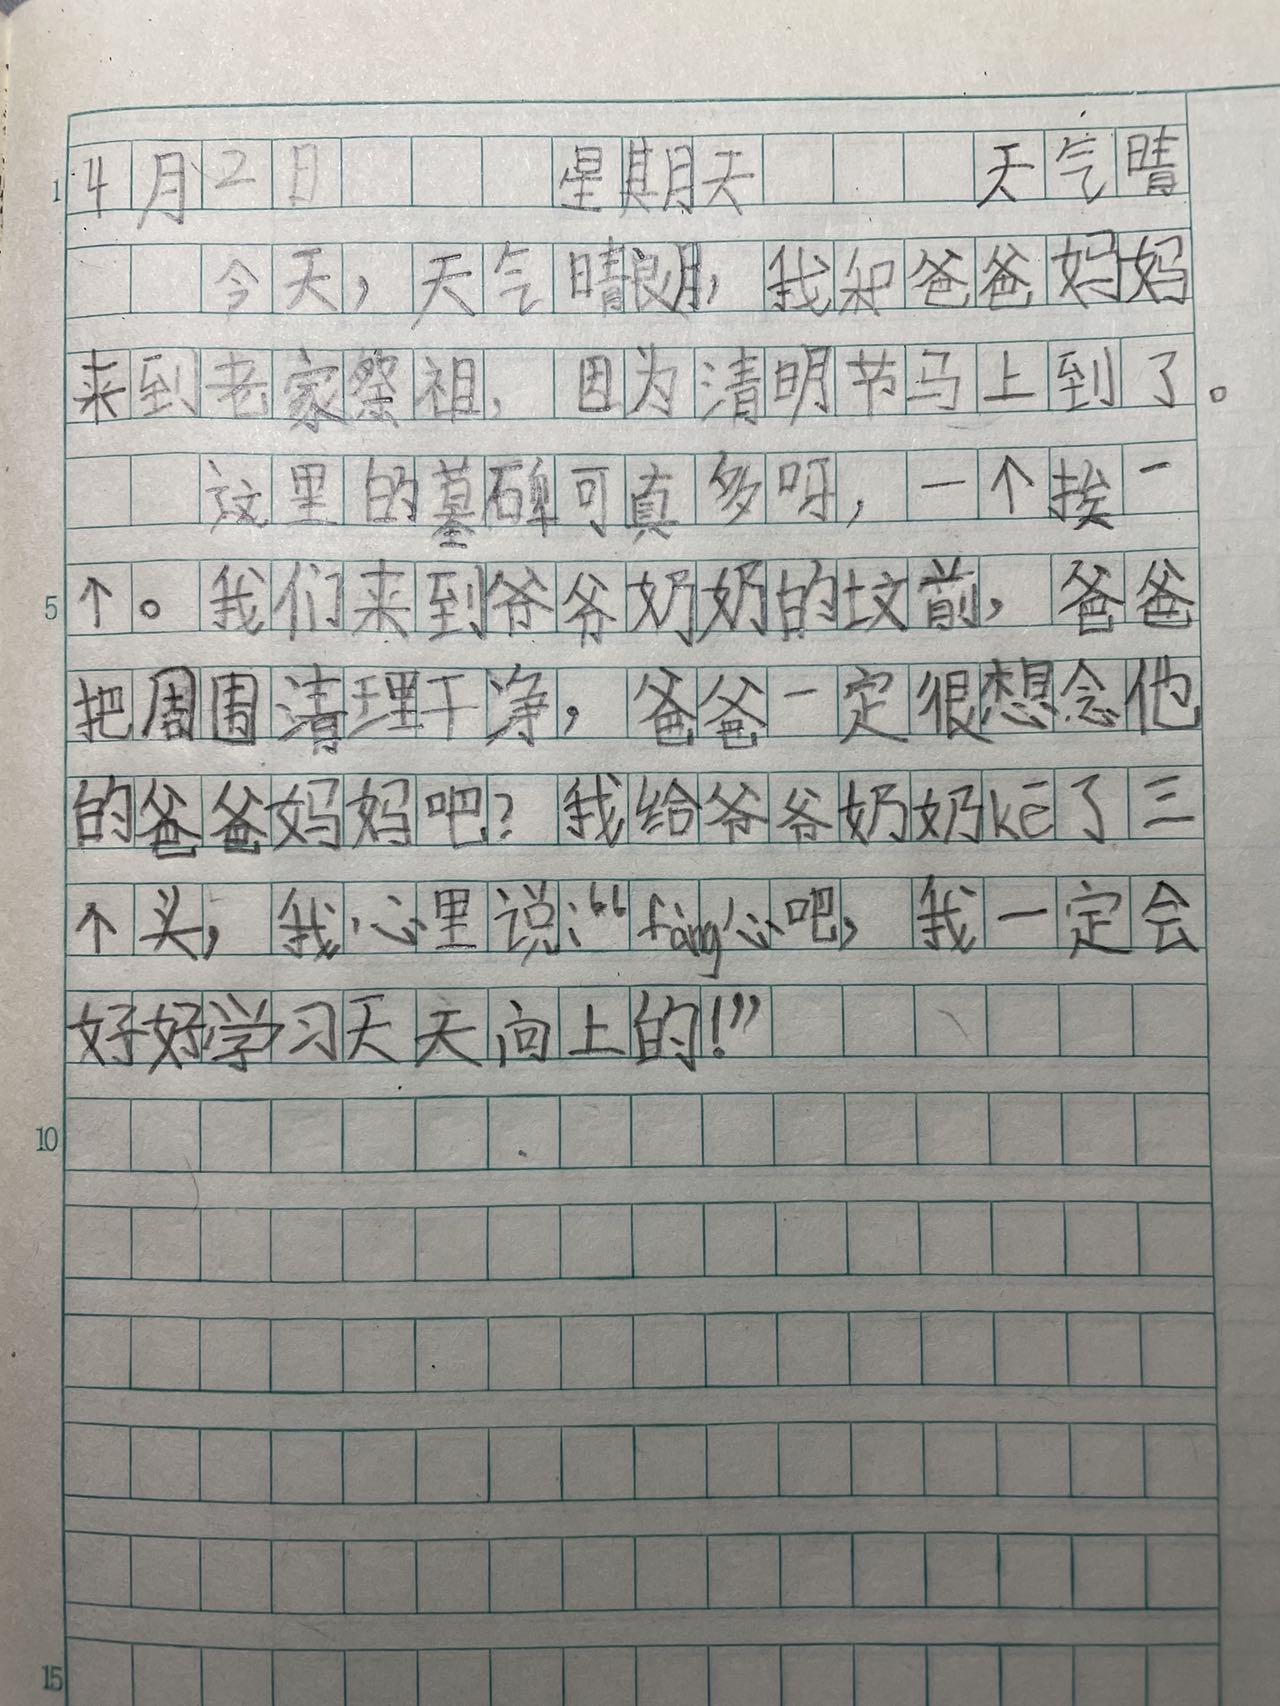 4月2日 星期天 天气晴
今天，天气晴朗，我和爸爸妈妈
来到老家祭祖，因为清明节马上到了。
这里的墓碑可真多呀，一个挨一
个。我们来到爷爷奶奶的坟前，爸爸
把周围清理干净，爸爸一定很想念他
的爸爸妈妈吧？我给爷爷奶奶kē了三
个头，我心里说：“fàng心吧，我一定会
好好学习天天向上的！”
1
5
10
15